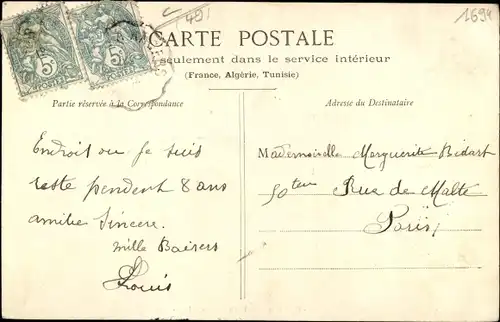 (49)
1694
CARTE POSTALE
seulement dans le service intérieur
(France, Algérie, Tunisie)
Partie réservée à la Correspondance
Endroit ou Je suis
reste pendent 8 ans
amitie Sincere
mille Baisers
Louis
Adresse du Destinataire
Mademoiselle Marguerite Bidart
Rue de Malte
Paris